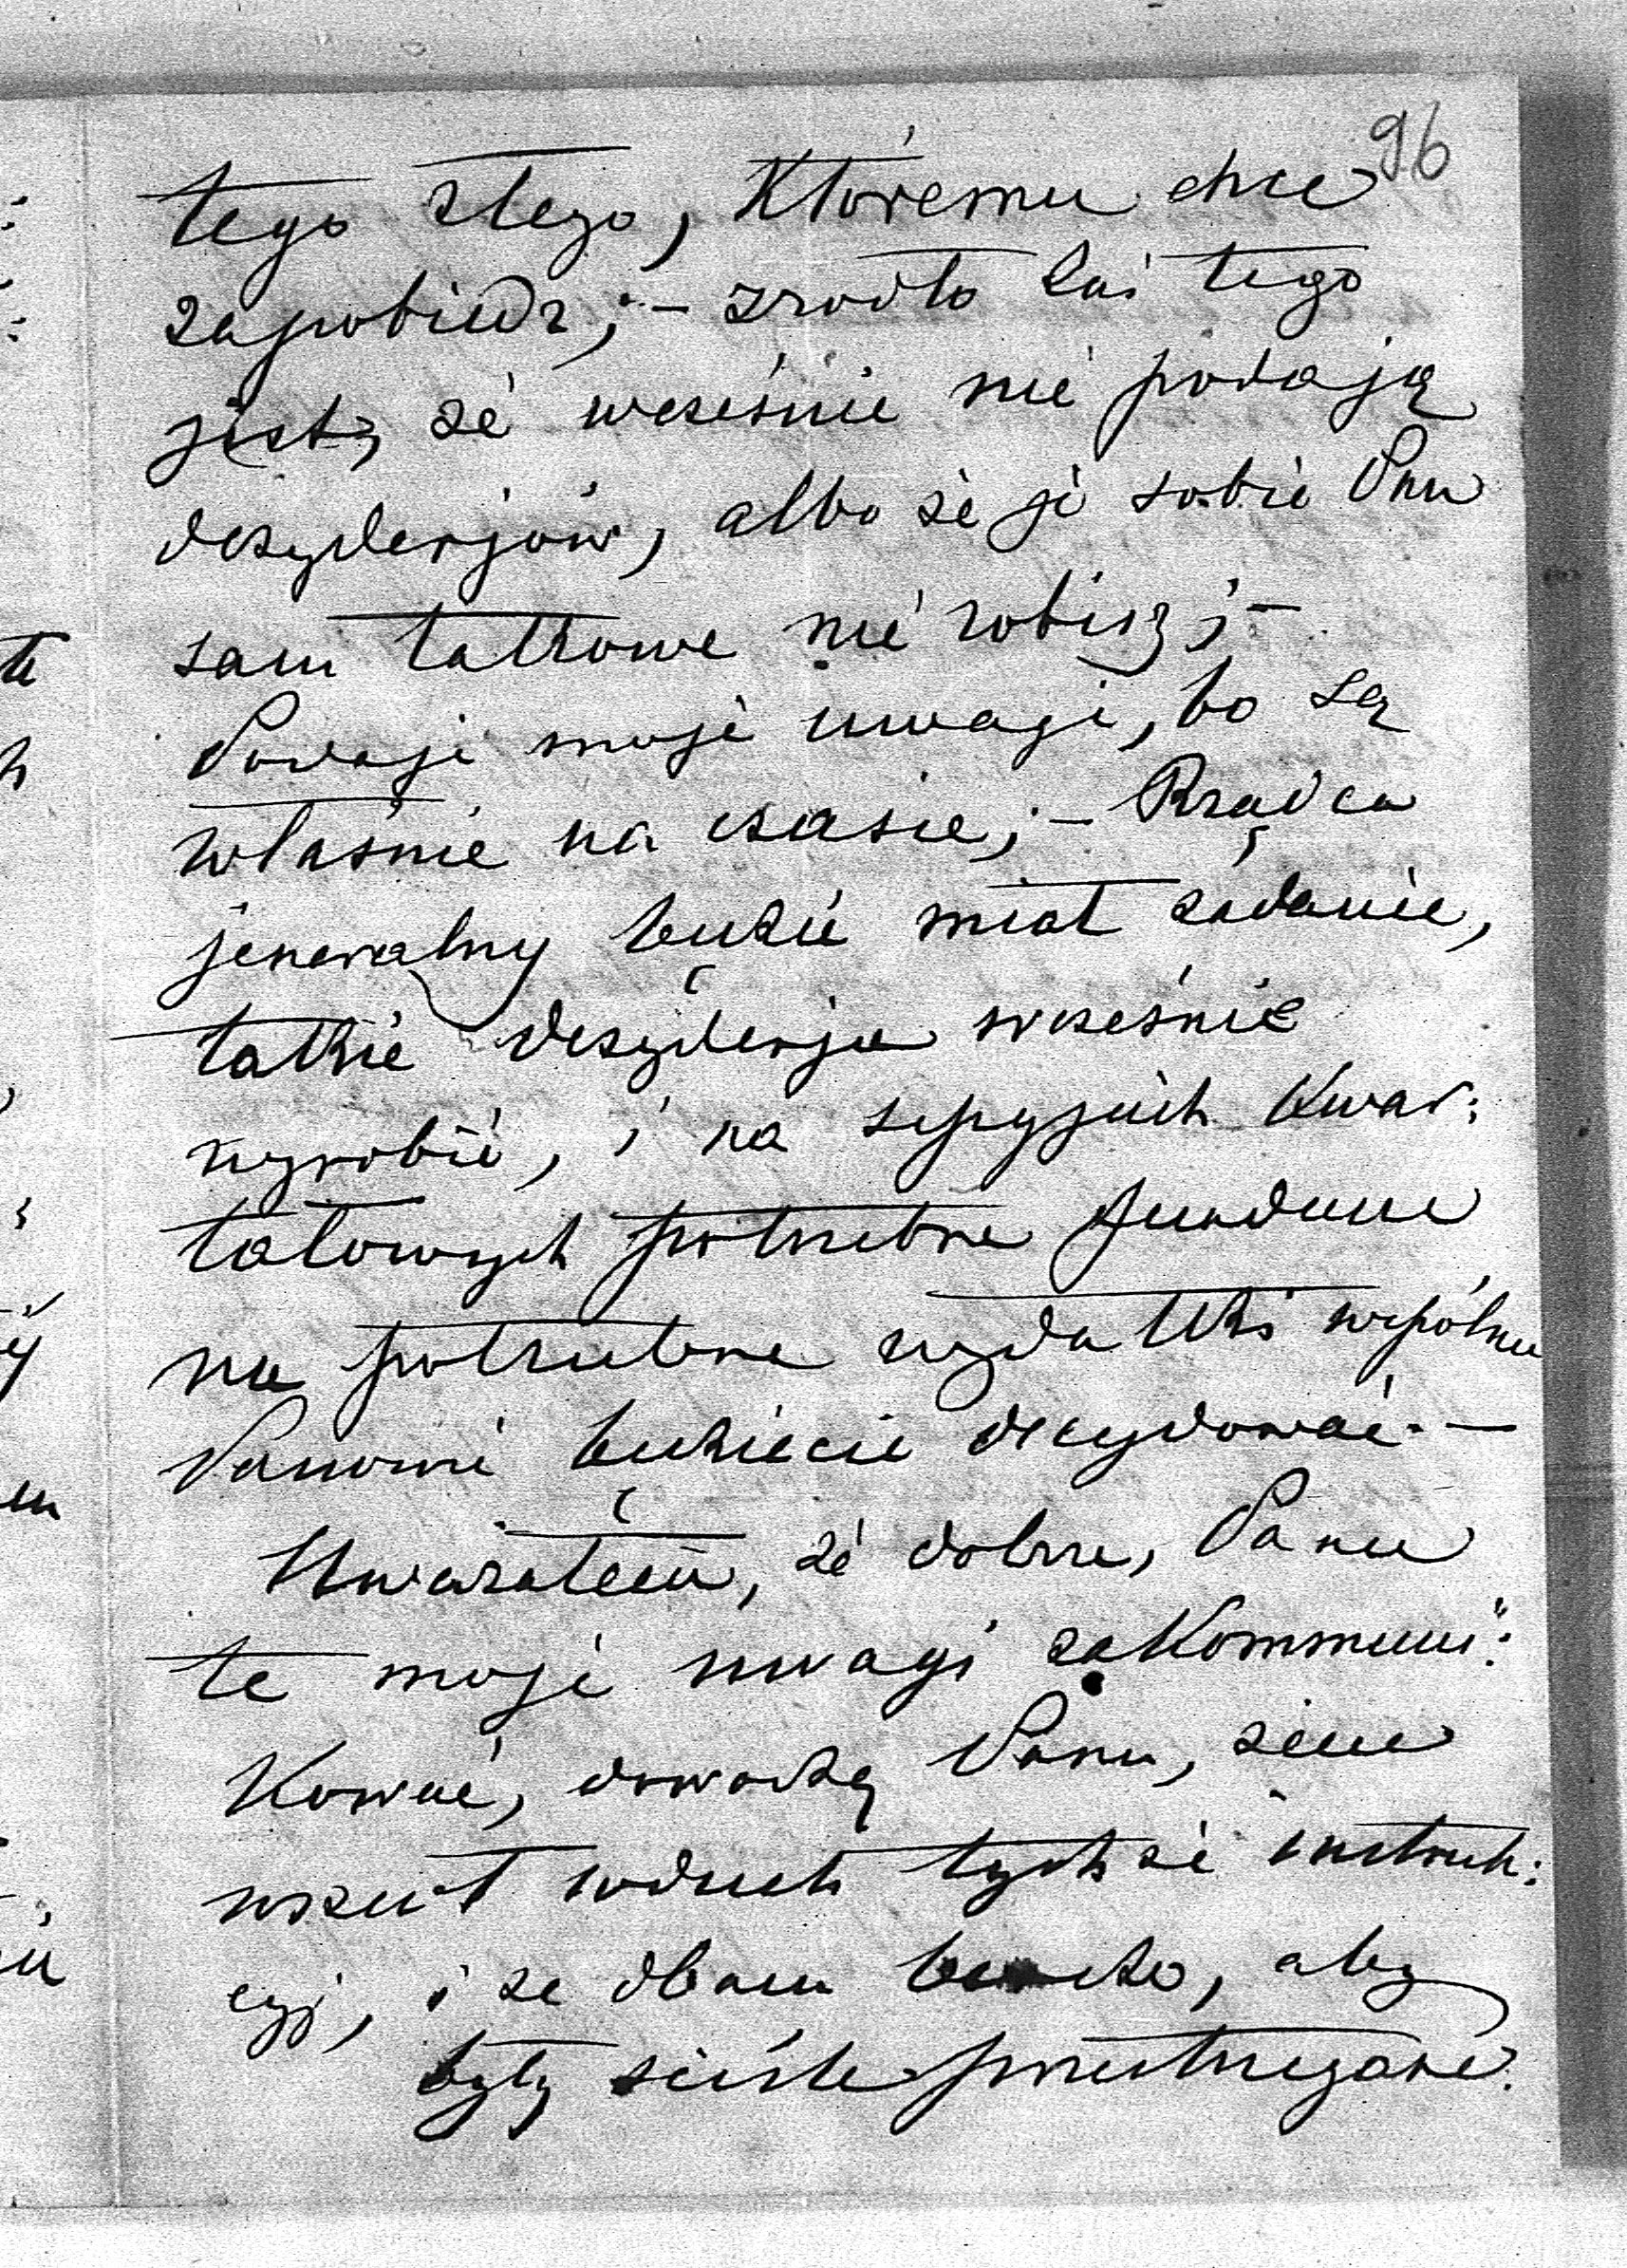 96
tego złego, któremu chce
zapobiedz; – zrodło zaś tego
jest, że wcześnie nie podają
dezyderjów, albo że je sobie Pan
sam takowe nie robisz; –
Podaję moje uwagi, bo są
właśnie na czasie; – Rządca
jeneralny będzie miał zadanie,
takie dezyderja wcześnie
wyrobić, i na sessyjach kwar:
tałowych potrzebne fundusze
na potrzebne wydatki wspólnie
Panowie będziecie decydować. –
Uważałem, że dobrze, Panu
te moje uwagi zakommuni:
kować, dowodzą Panu, żem
wszedł w duch tychże instruk:
cyj, i że dbam bardzo, aby
były ściśle przestrzegane.